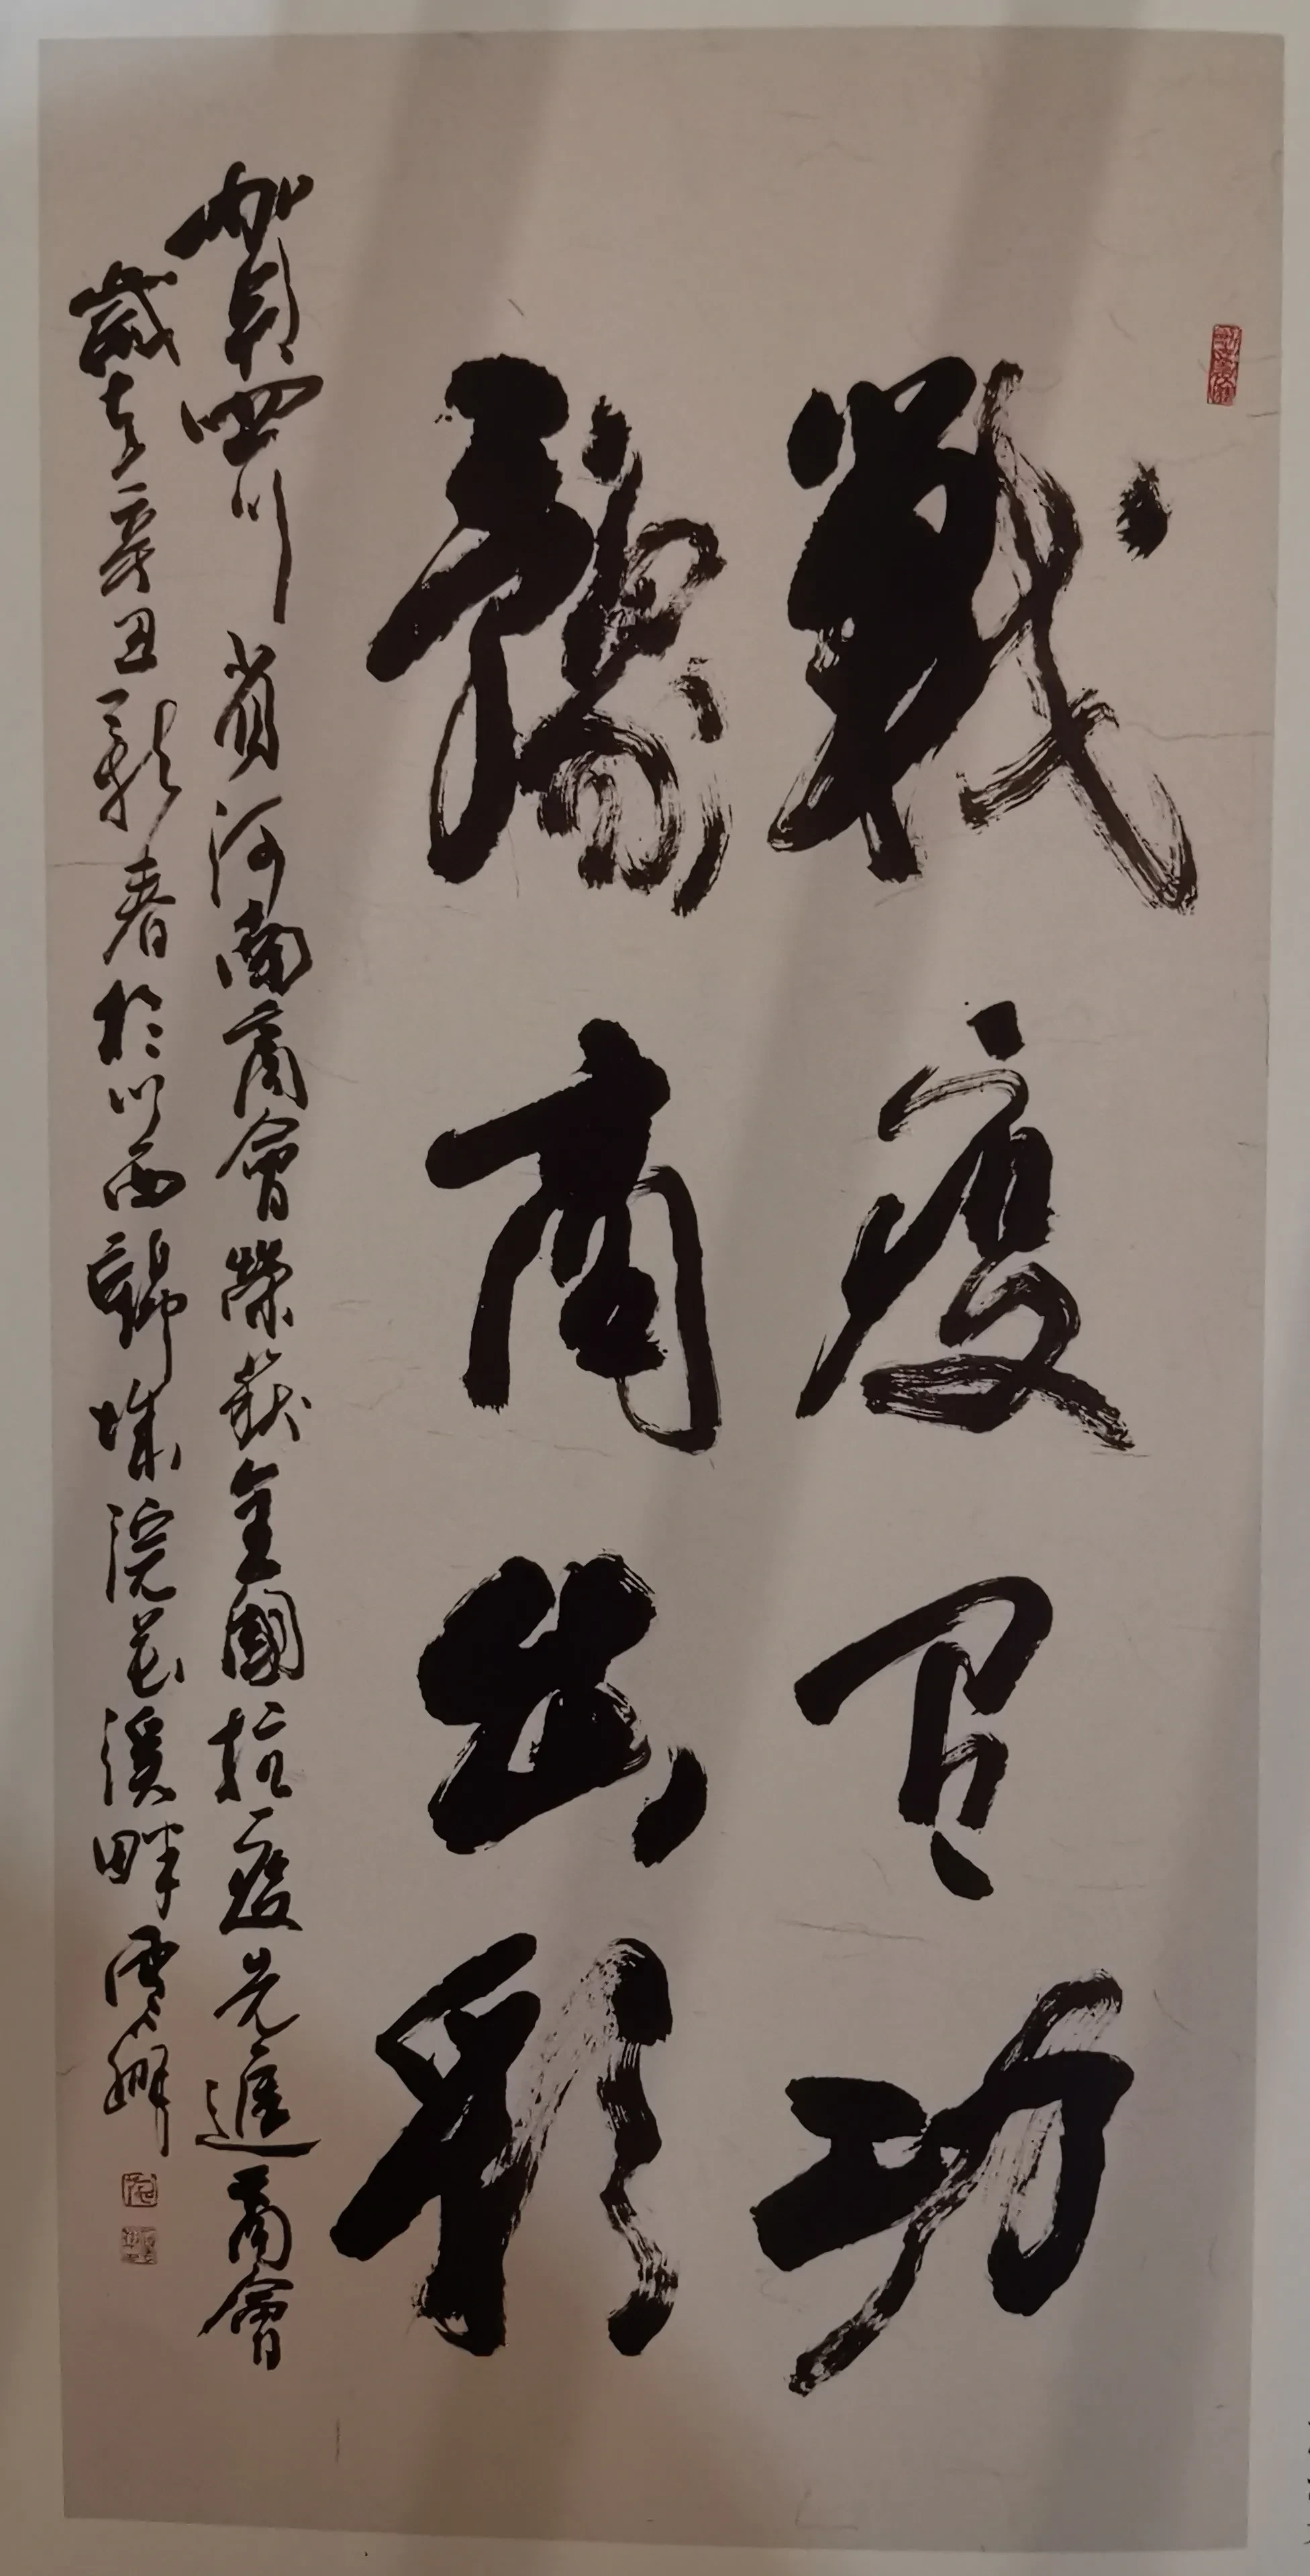 戰疫有功
豫商出彩
賀四川省河南商會榮獲全國抗疫先進商會
歲在辛丑新春於川西錦城浣花溪畔雪